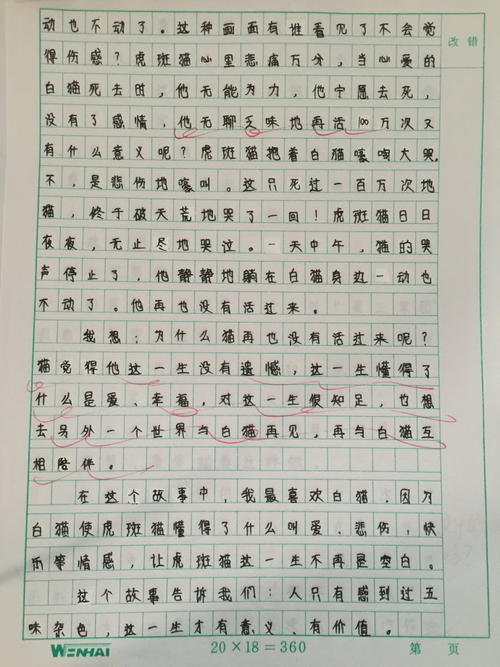 动也不动了。这种画面有谁看见了不会觉
得伤感?虎斑猫心里悲痛万分,当心爱的
白猫死去时,他无能为力,他宁愿去死,
没有了感情,他无聊乏味地再活100万次又
有什么意义呢?虎斑猫抱着白猫嚎啕大哭,
不,是悲伤地嚎叫。这只死过一百万次地
猫,终于破天荒地哭了一回!虎斑猫日日
夜夜,无止尽地哭泣。一天中午,猫的哭
声停止了,他静静地躺在白猫身边一动也
不动了。他再也没有活过来。
我想:为什么猫再也没有活过来呢?
猫觉得他这一生没有遗憾,这一生懂得了
什么是爱、幸福,对这一生很知足,也想
去另外一个世界与白猫再见,再与白猫互
相陪伴。
在这个故事中,我最喜欢白猫,因为
白猫使虎斑猫懂得了什么叫爱、悲伤,快
乐等情感,让虎斑猫这一生不再是空白。
这个故事告诉我们:人只有感到过五
味杂色,这一生才有意义、有价值。
改错
WENHAI 20×18=360 第 页